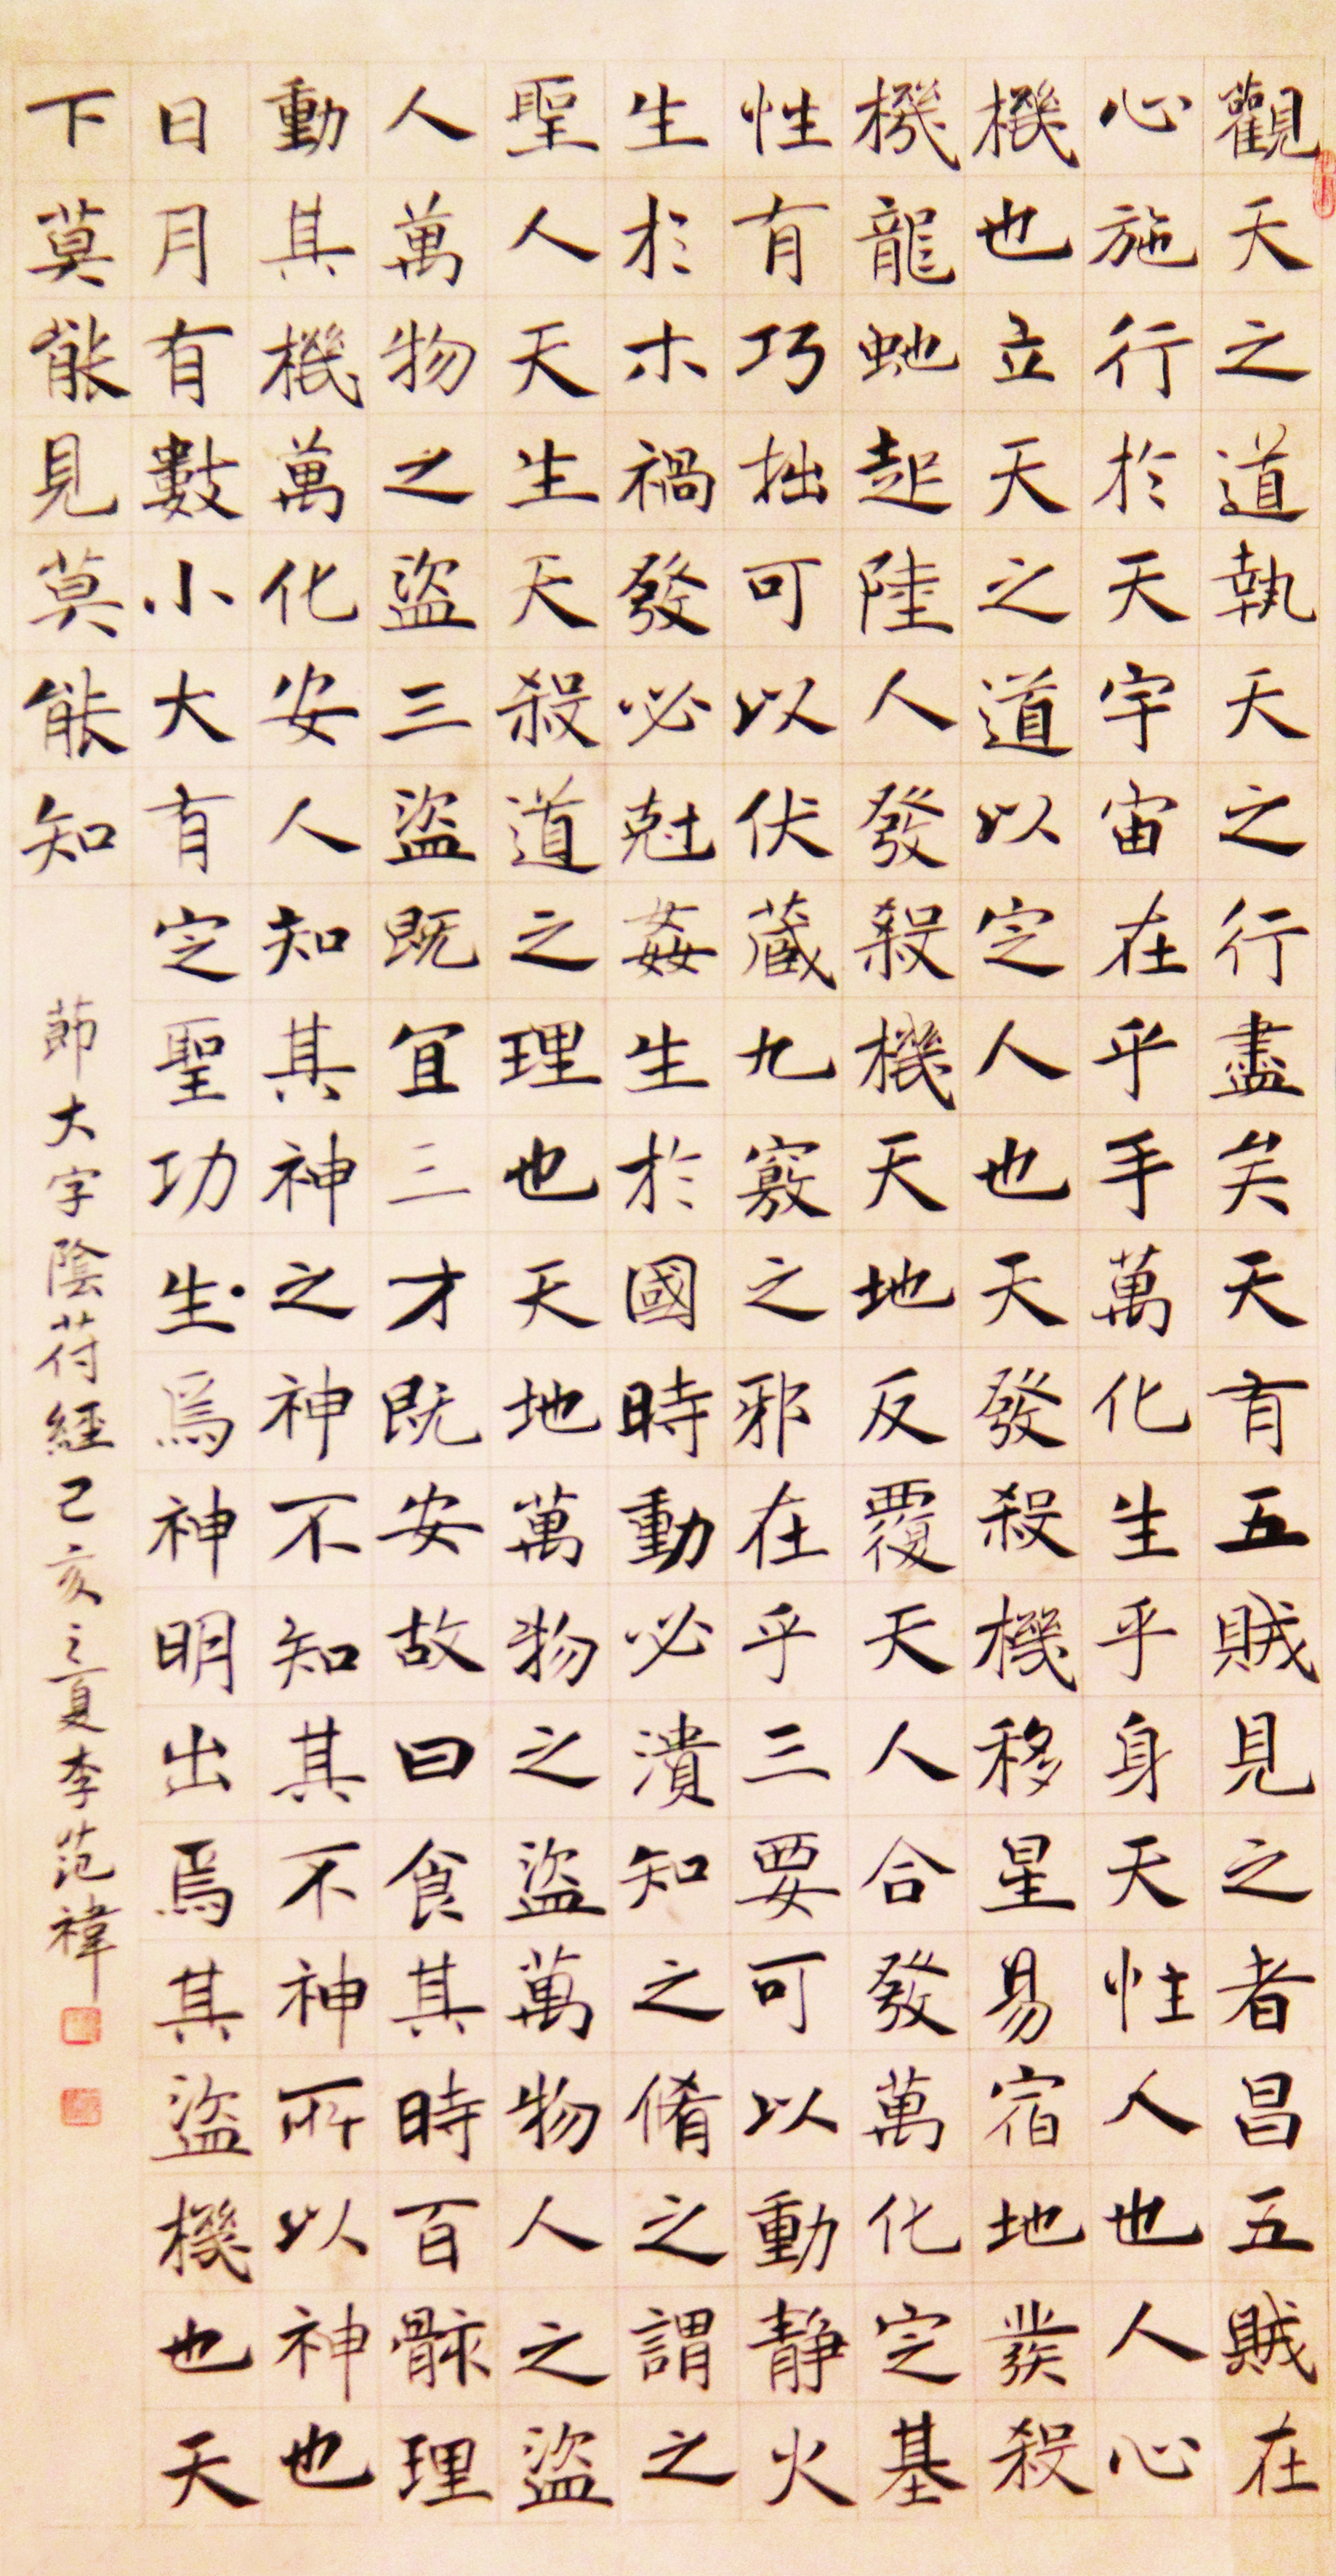 觀天之道執天之行盡矣天有五賊見之者昌五賊在
心施行於天宇宙在乎手萬化生乎身天性人也人心
機也立天之道以定人也天發殺機移星易宿地發殺
機龍虵起陸人發殺機天地反覆天人合發萬化定基
性有巧拙可以伏藏九竅之邪在乎三要可以動静火
生於木禍發必尅姦生於國時動必潰知之脩之謂之
聖人天生天殺道之理也天地萬物之盜萬物人之盜
人萬物之盜三盜既宜三才既安故曰食其時百骸理
動其機萬化安人知其神之神不知其不神所以神也
日月有數小大有定聖功生焉神明出焉其盜機也天
下莫能見莫能知
節大字陰符經己亥之夏李范禕